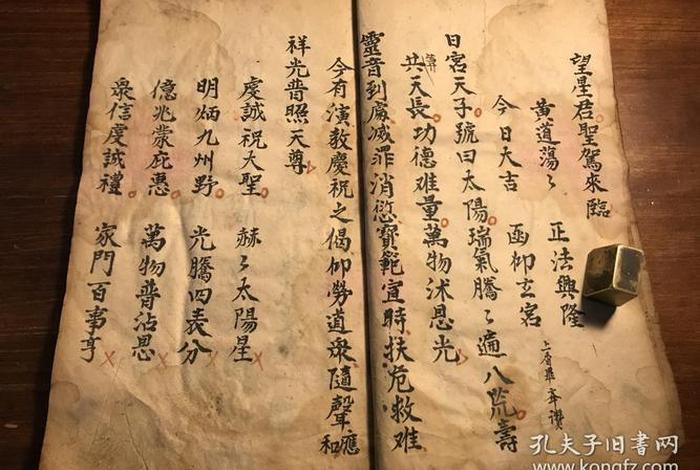 望星君聖駕來臨
黃道蕩〻 正法興隆
今日大吉 函仰玄宮 上香畢奉讚
日宮天子號曰太陽瑞氣騰〻遍八荒壽
共天長功德难量萬物沐恩光
靈音到處滅罪消愆寶範宣時扶危救难
今有演教慶祝之偈仰勞道衆隨聲應和
祥光普照天尊
虔誠祝大聖 赫〻太陽星
明炳九州野 光騰四表分
億兆蒙庇惠 萬物普沾恩
衆信虔誠禮 家門百事亨
孔夫子旧书网
www.kongfz.com